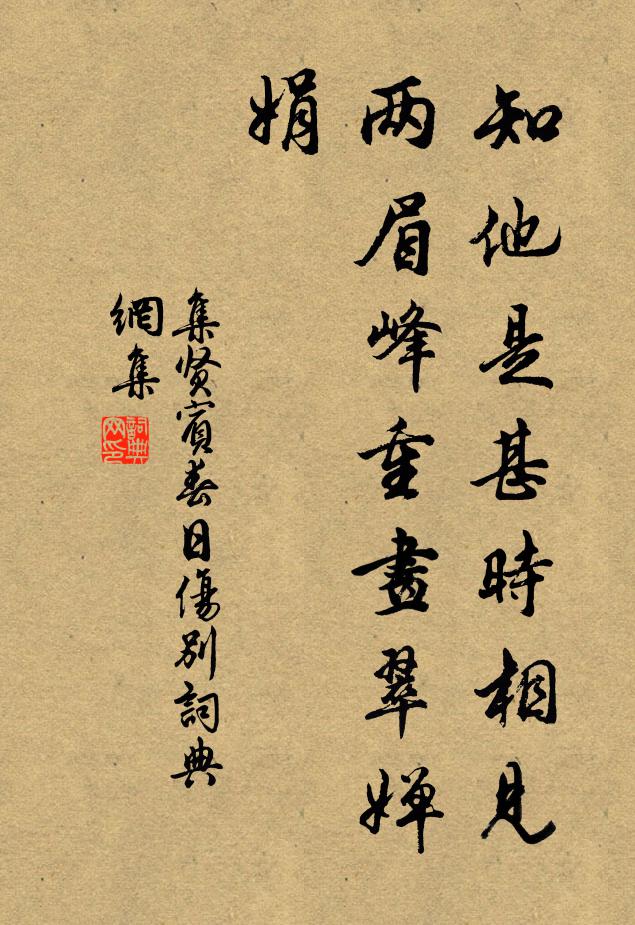 知他是甚時相見
两眉峰重畫翠嬋
娟
集贤賓春日傷别詞典
網集
詞典
网印